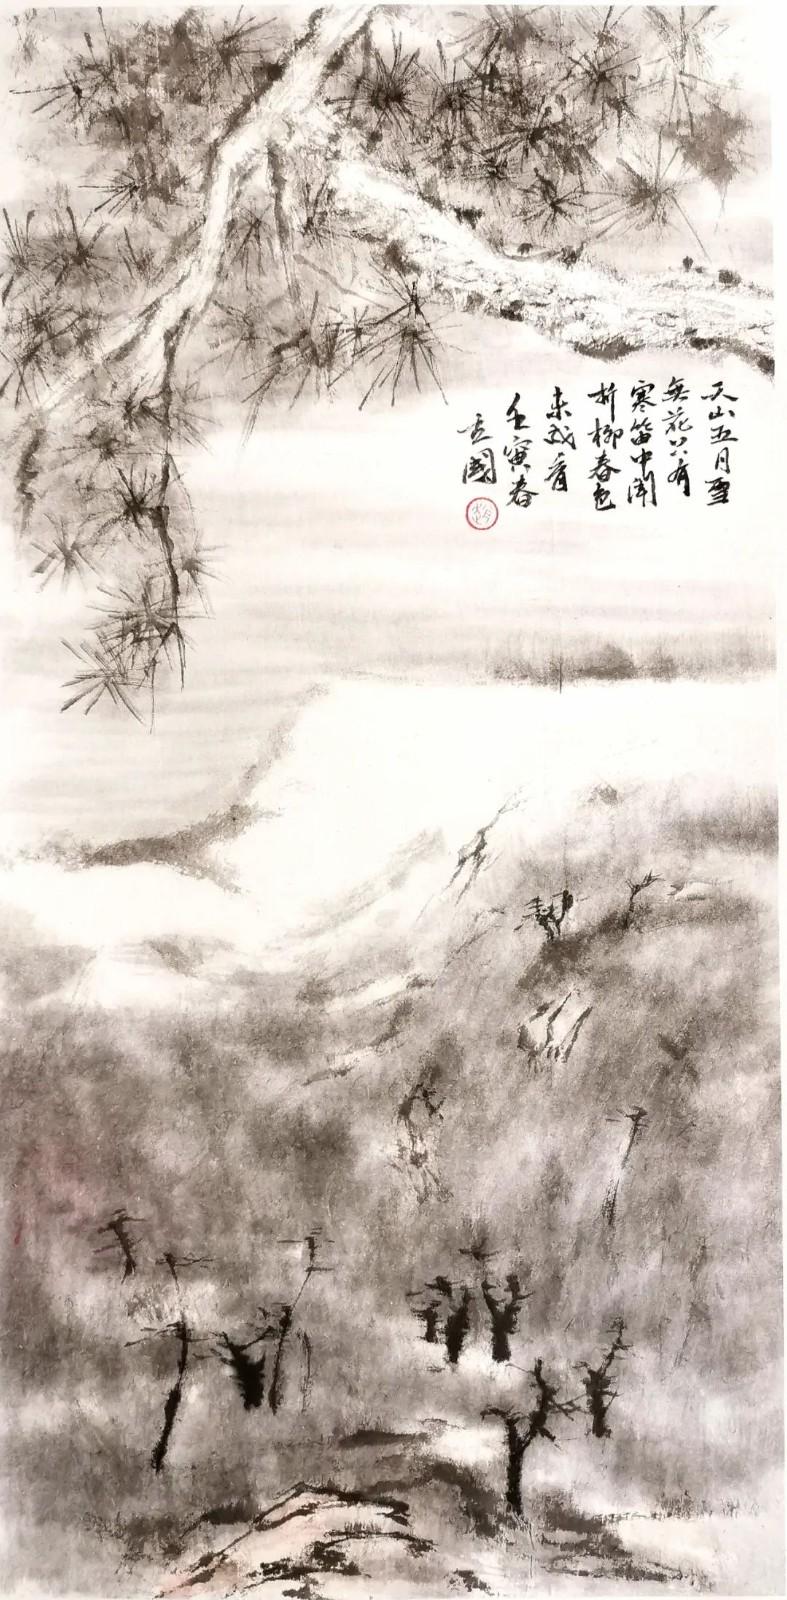 天山五月雪
無花只有
寒笛中聞
折柳春色
未看
壬寅春
立國